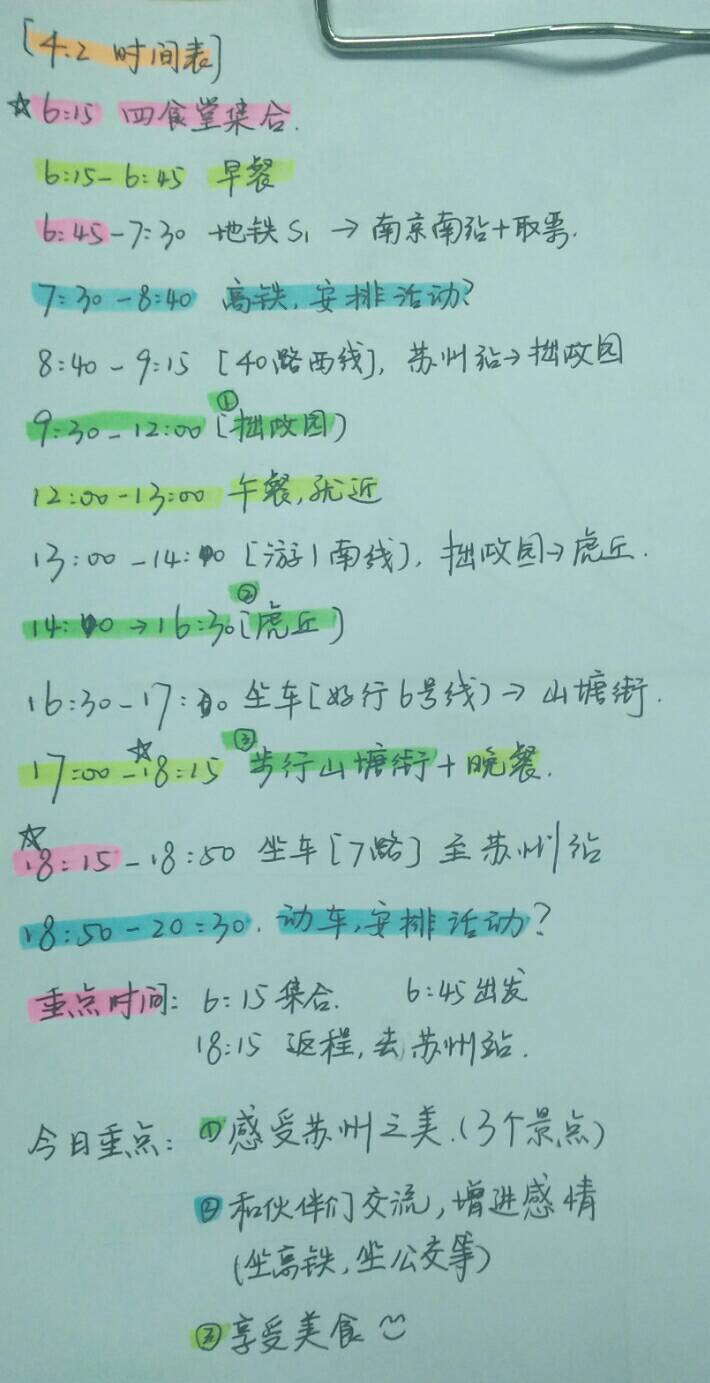 [4.2 时间表]
☆6:15 四食堂集合.
6:15-6:45 早餐
6:45-7:30 地铁S1 → 南京南站+取票.
7:30-8:40 高铁,安排活动?
8:40-9:15 [40路西线], 苏州站→拙政园
9:30-12:00 ①[拙政园]
12:00-13:00 午餐,就近
13:00-14:00 [游1南线], 拙政园→虎丘.
14:00→16:30 ②[虎丘]
16:30-17:00 坐车[好行6号线]→山塘街.
17:00-☆18:15 ③步行山塘街+晚餐.
☆18:15-18:50 坐车[7路]至苏州站
18:50-20:30. 动车,安排活动?
重点时间: 6:15集合. 6:45出发
18:15 返程,去苏州站.
今日重点: ①感受苏州之美.(3个景点)
②和伙伴们交流,增进感情
(坐高铁,坐公交等)
③享受美食